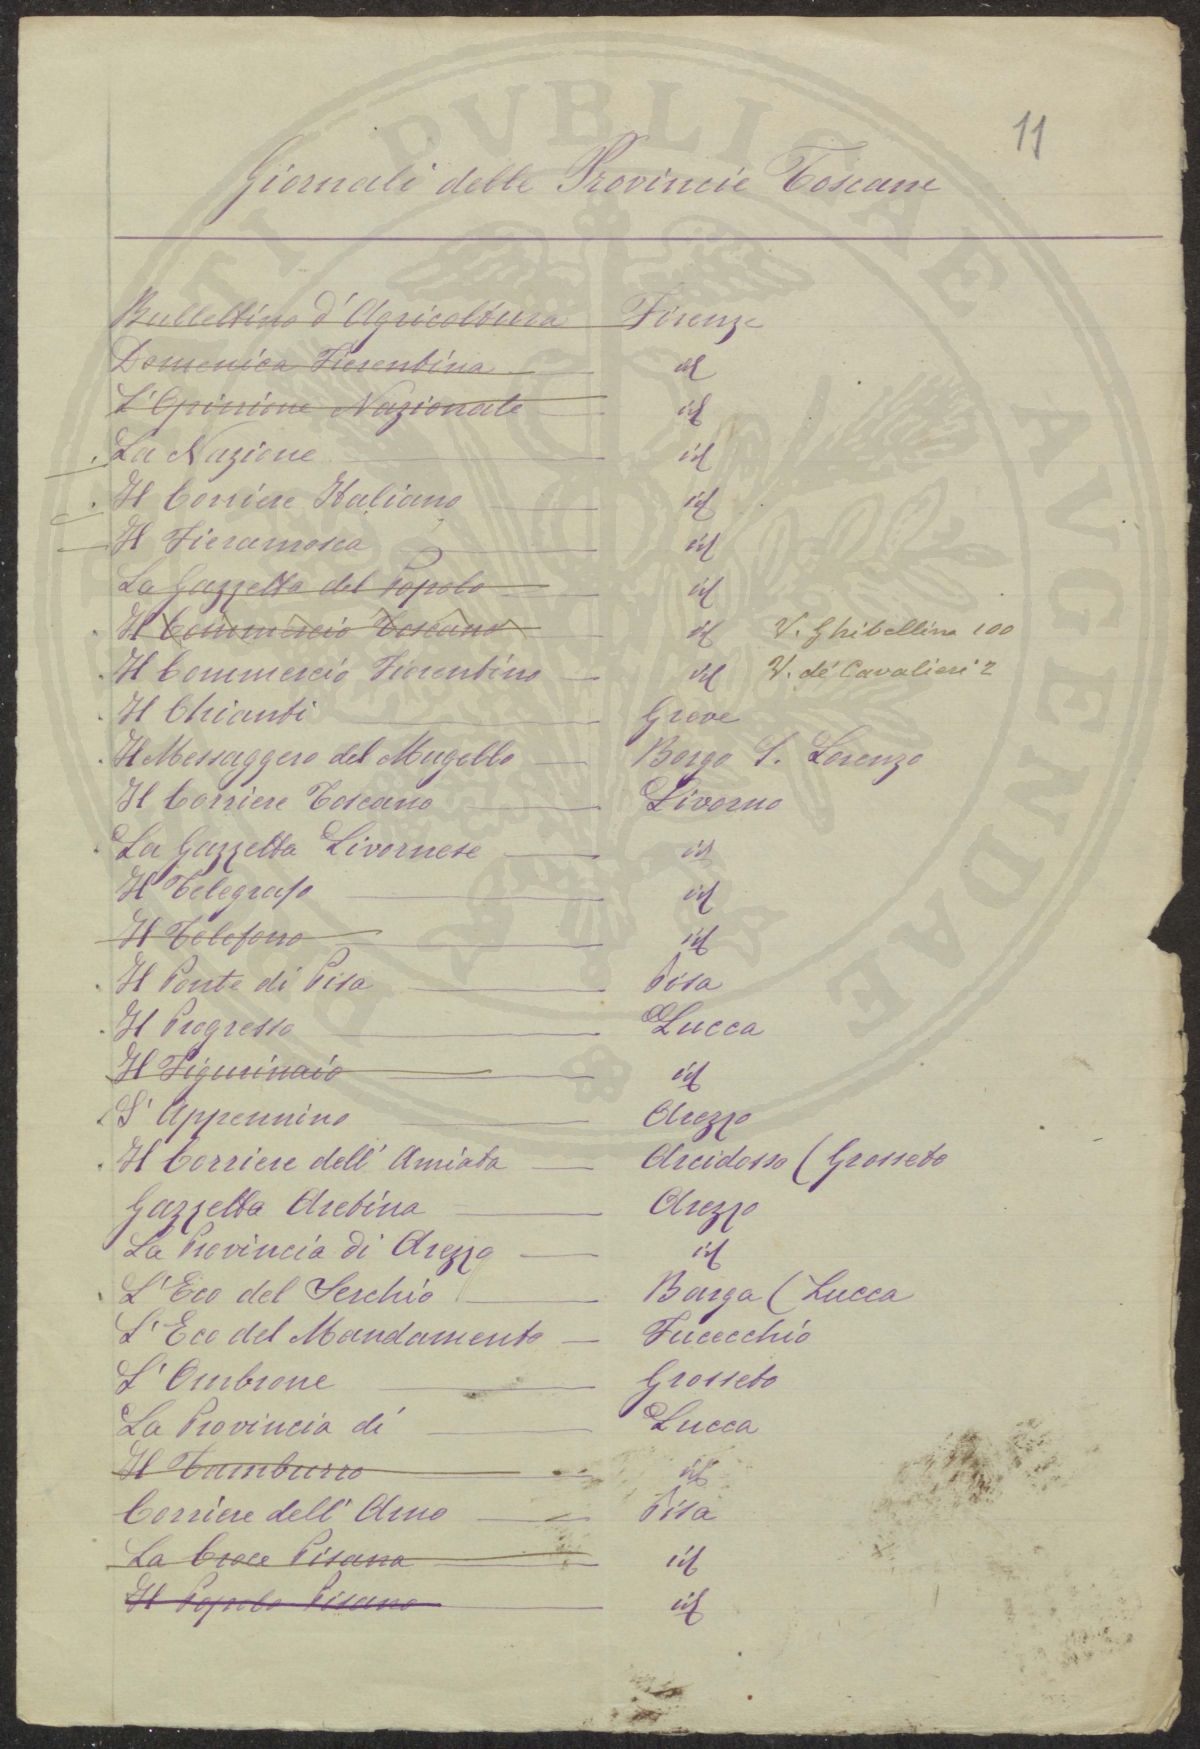 11
Giornali delle Provincie Toscane
Bullettino d'Agricoltura Firenze
Domenica Fiorentina id
L'Opinione Nazionale id
La Nazione id
Il Corriere Italiano id
Il Fieramosca id
La Gazzetta del Popolo id
Il Commercio Toscano id V. Ghibellina 100
Il Commercio Fiorentino id V. de' Cavalieri 2
Il Chianti Greve
Il Messaggero del Mugello Borgo S. Lorenzo
Il Corriere Toscano Livorno
La Gazzetta Livornese id
Il Telegrafo id
Il Telefono id
Il Ponte di Pisa Pisa
Il Progresso Lucca
Il Figurinaio id
L'Appennino Arezzo
Il Corriere dell'Amiata Arcidosso (Grosseto
Gazzetta Aretina Arezzo
La Provincia di Arezzo id
L'Eco del Serchio Barga (Lucca
L'Eco del Mandamento Fucecchio
L'Ombrone Grosseto
La Provincia di Lucca
Il Tamburro id
Corriere dell'Arno Pisa
La Croce Pisana id
Il Popolo Pisano id
REI PVBLICAE AVGENDAE